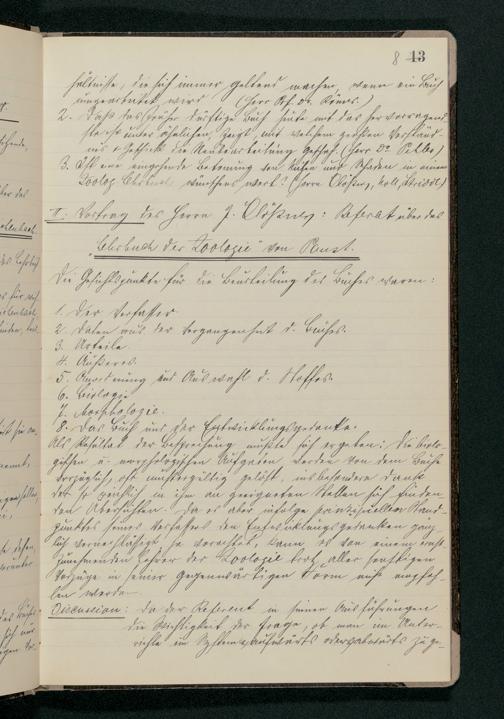 8 43
hältnisse, die sich immer geltend machen, wenn ein Buch
umgearbeitet wird. (Herr Prof. Dr.
2. Daß das früher dürftige Buch heute mit das hervorragend-
ste ist unter ähnlichen, zeigt mit welchem großen Verständ-
nis die Neubearbeitung geschah. (Herr Dr.
3. Ist eine eingehende Betonung von Nutzen und Schaden in einem
Zoolog. Lehrbuch wünschenswert? (Herren
II: Vortrag des Herrn J. Referat über das
"Lehrbuch der Zoologie" von
Die Gesichtspunkte für die Beurteilung des Buches waren:
1. Der Verfasser
2. Daten aus der Vergangenheit d. Buches.
3. Urteile.
4. Äußeres.
5. Anordnung und Auswahl d. Stoffes.
6. Biologie
7. Morphologie.
8. Das Buch und der Entwicklungsgedanke.
Als Resultat der Besprechung mußte sich ergeben: Die biolo-
gischen u. morphologischen Aufgaben werden von dem Buche
vorzüglich, oft mustergültig gelöst, insbesondere dank
der so in ihm an geeigneten Stellen sich finden-
den Übersichten. Da es aber infolge Stand-
punktes seines Verfassers den Entwicklungsgedanken gänz-
lich vernachlässigt so kann es von einem ernst
zunehmenden Lehrer der Zoologie trotz aller sonstigen
Vorzüge in seiner gegenwärtigen Form nicht empfoh-
len werden.
Discussion: Da der Referent in seinen Ausführungen
die Wichtigkeit der Frage, ob man im Unter-
richte im System aufwärts oder abwärts zu ge-